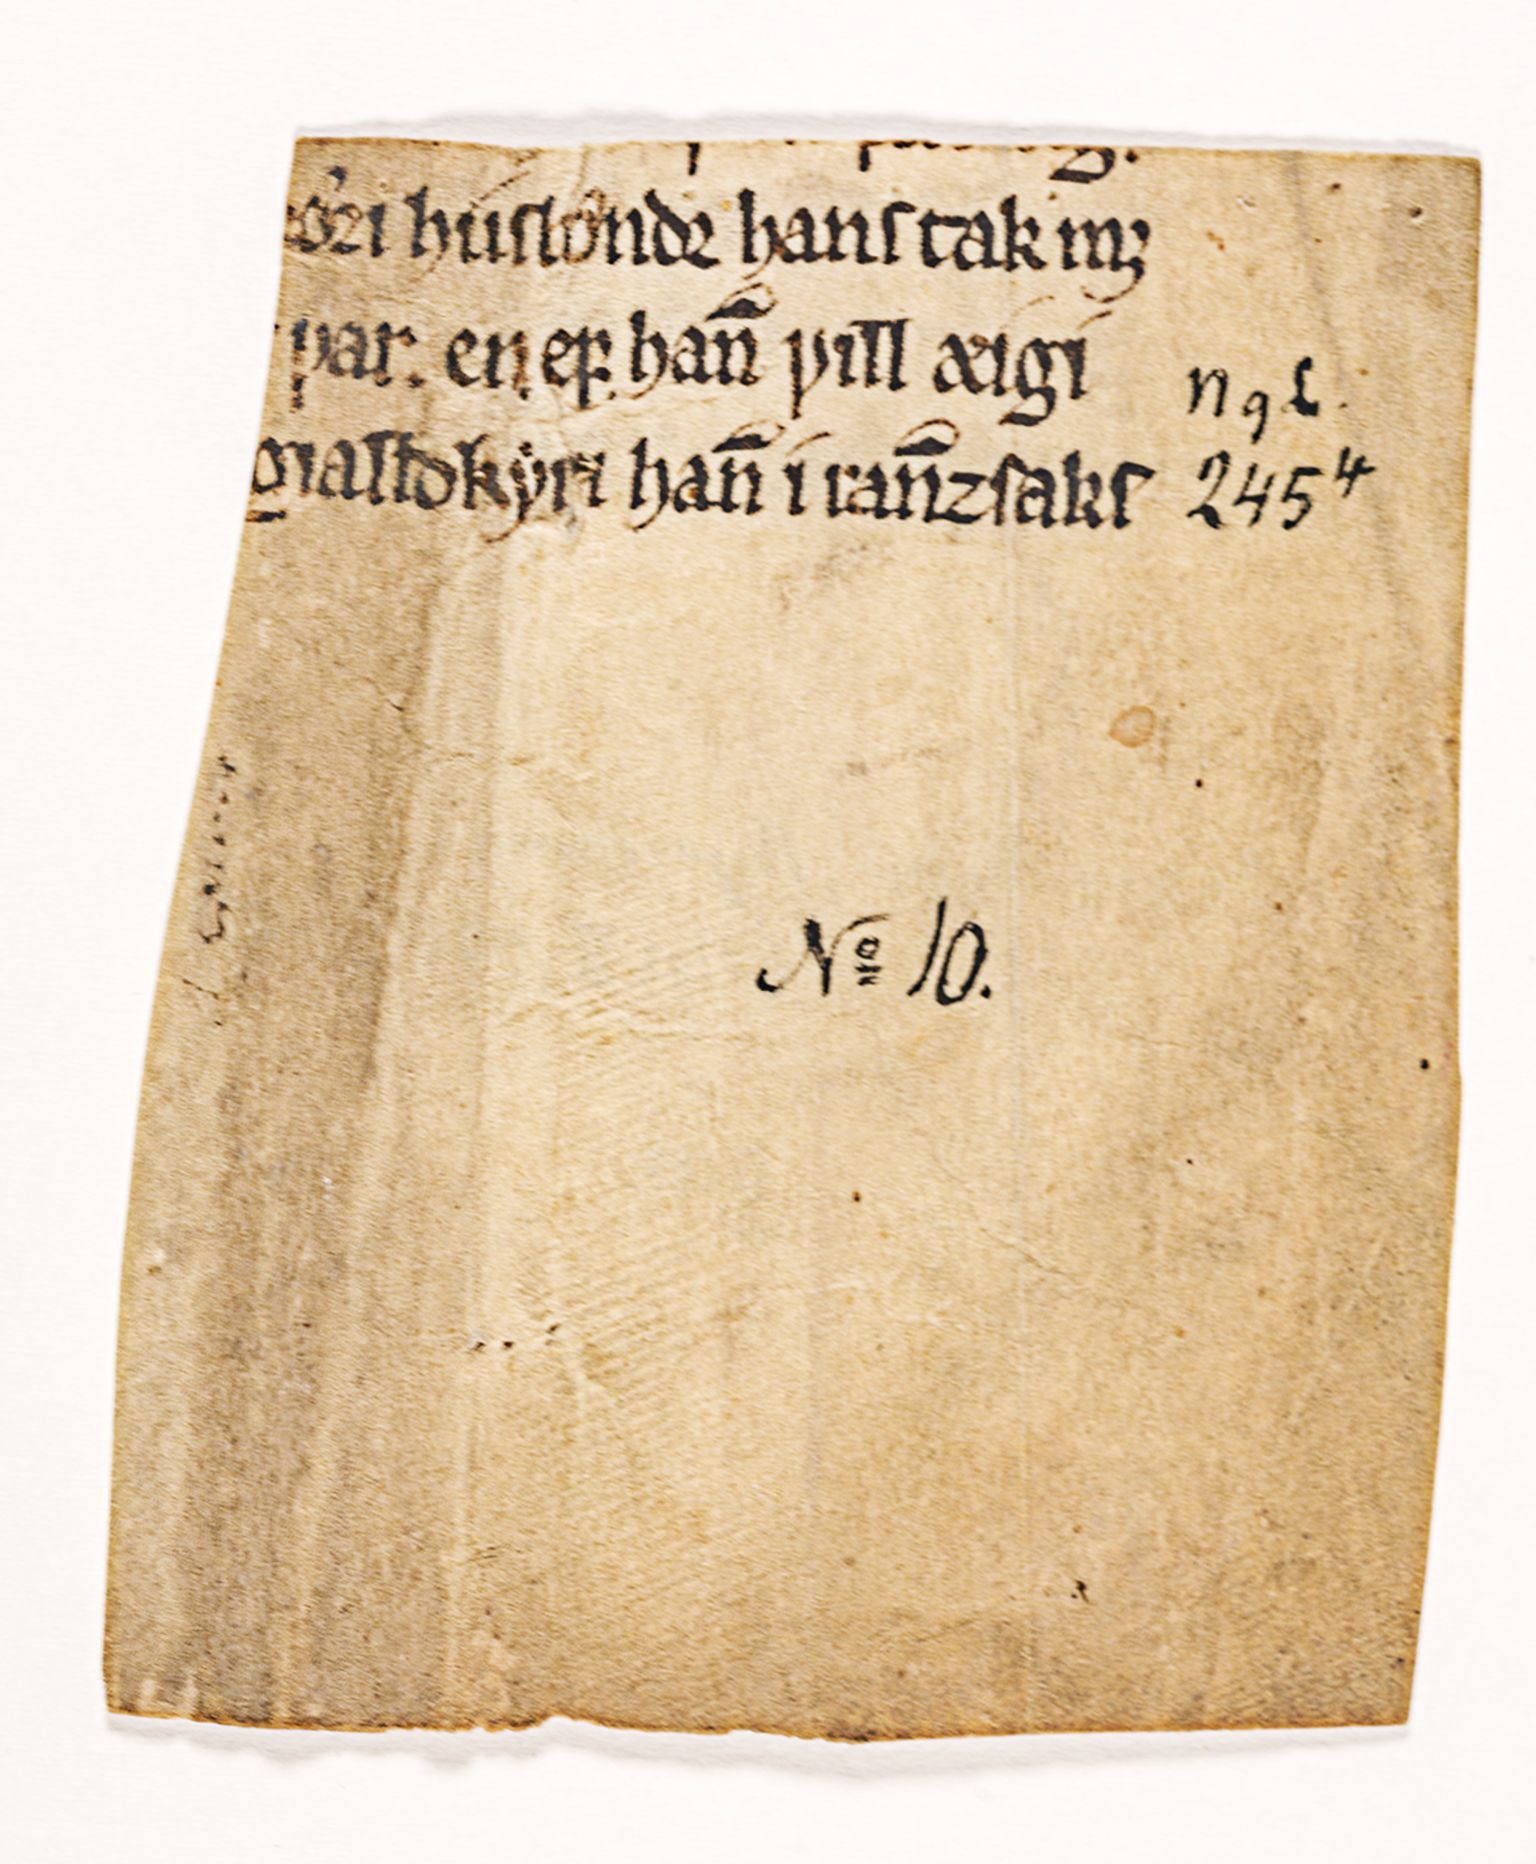 huſbonde hanſ tak mꝫ
ꝩar. en eꝼ. han̄ ꝩill æigi
gialld kyꝛr han̄ i ran̄zſaks
n g L.
245⁴
Nº 10.